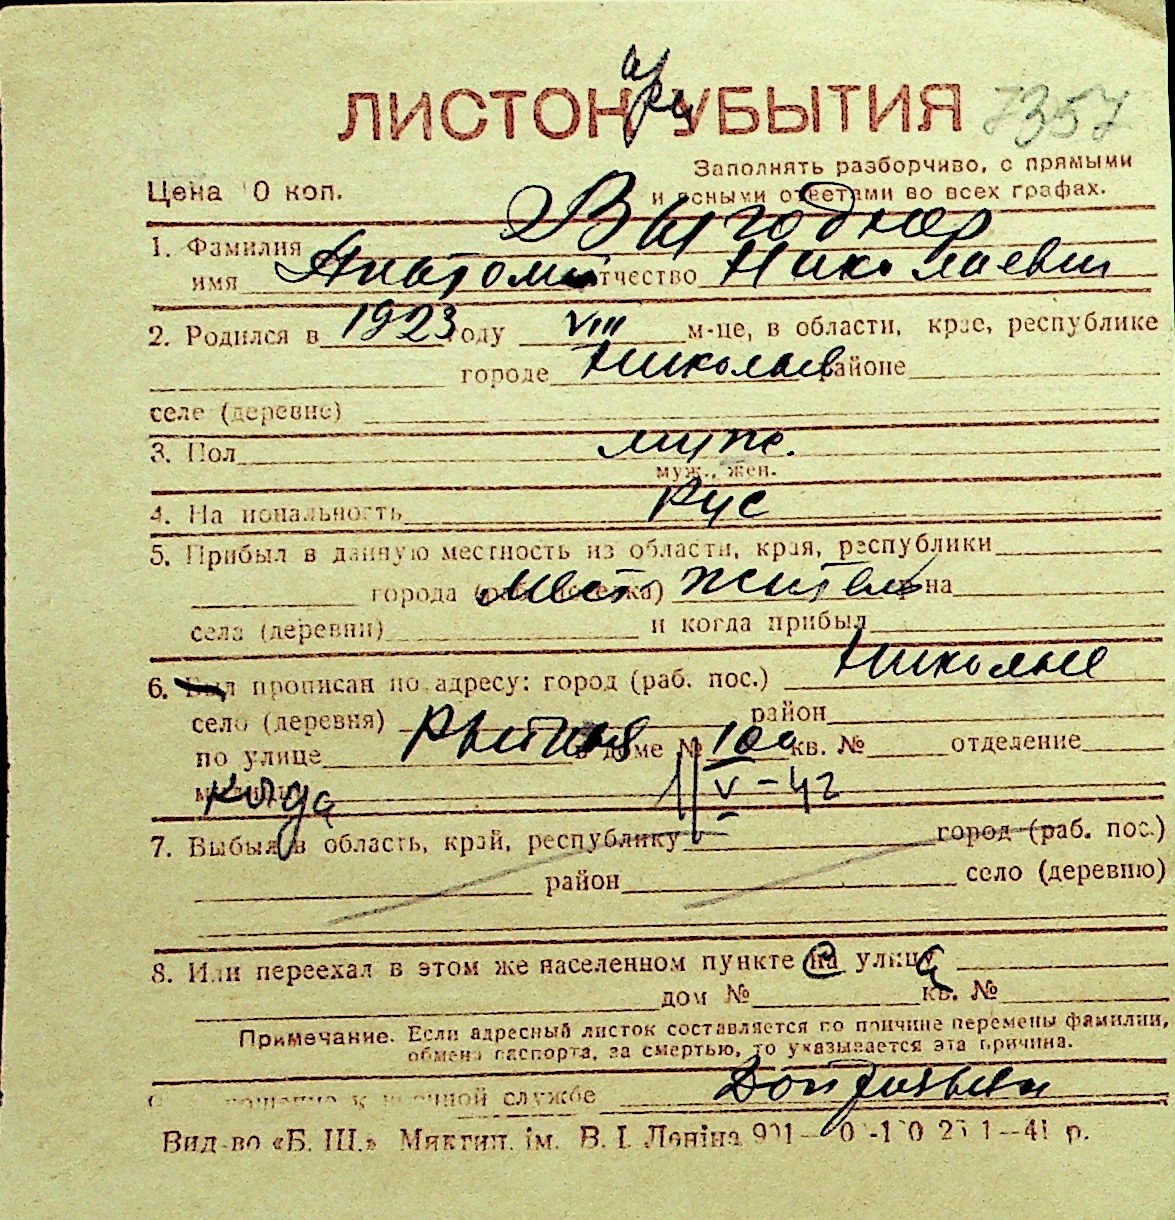 ЛИСТОК УБЫТИЯ 7357
Заполнять разборчиво, с прямыми
Цена 0 коп. и ясными ответами во всех графах.
1. Фамилия Выгоднер
имя Анатолий отчество Николаевич
2. Родился в 1923 году VIII м-це, в области, крае, республике
городе Николаев районе
селе (деревне)
3. Пол муж.
муж., жен.
4. Национальность Рус
5. Прибыл в данную местность из области, края, республики
города мест житель на
села (деревни) и когда прибыл
6. Был прописан по адресу: город (раб. пос.) Николаев
село (деревня) район
по улице Рыбная в доме № 100 кв. № отделение
когда V - 42
7. Выбыл в область, край, республику город (раб. пос.)
район село (деревню)
8. Или переехал в этом же населенном пункте на улицу
дом № кв. №
Примечание. Если адресный листок составляется по причине перемены фамилии,
обмена паспорта, за смертью, то указывается эта причина.
службе
Вид-во «Б. Ш.» Микгип. ім. В. І. Леніна 41 р.